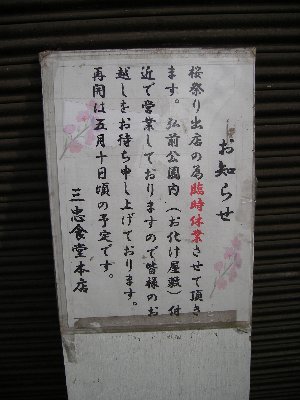 お知らせ
桜祭り出店の為臨時休業させて頂き
ます。弘前公園内（お化け屋敷）付
近で営業しておりますので皆様のお
越しをお待ち申し上げております。
再開は五月十日頃の予定です。
三忠食堂本店